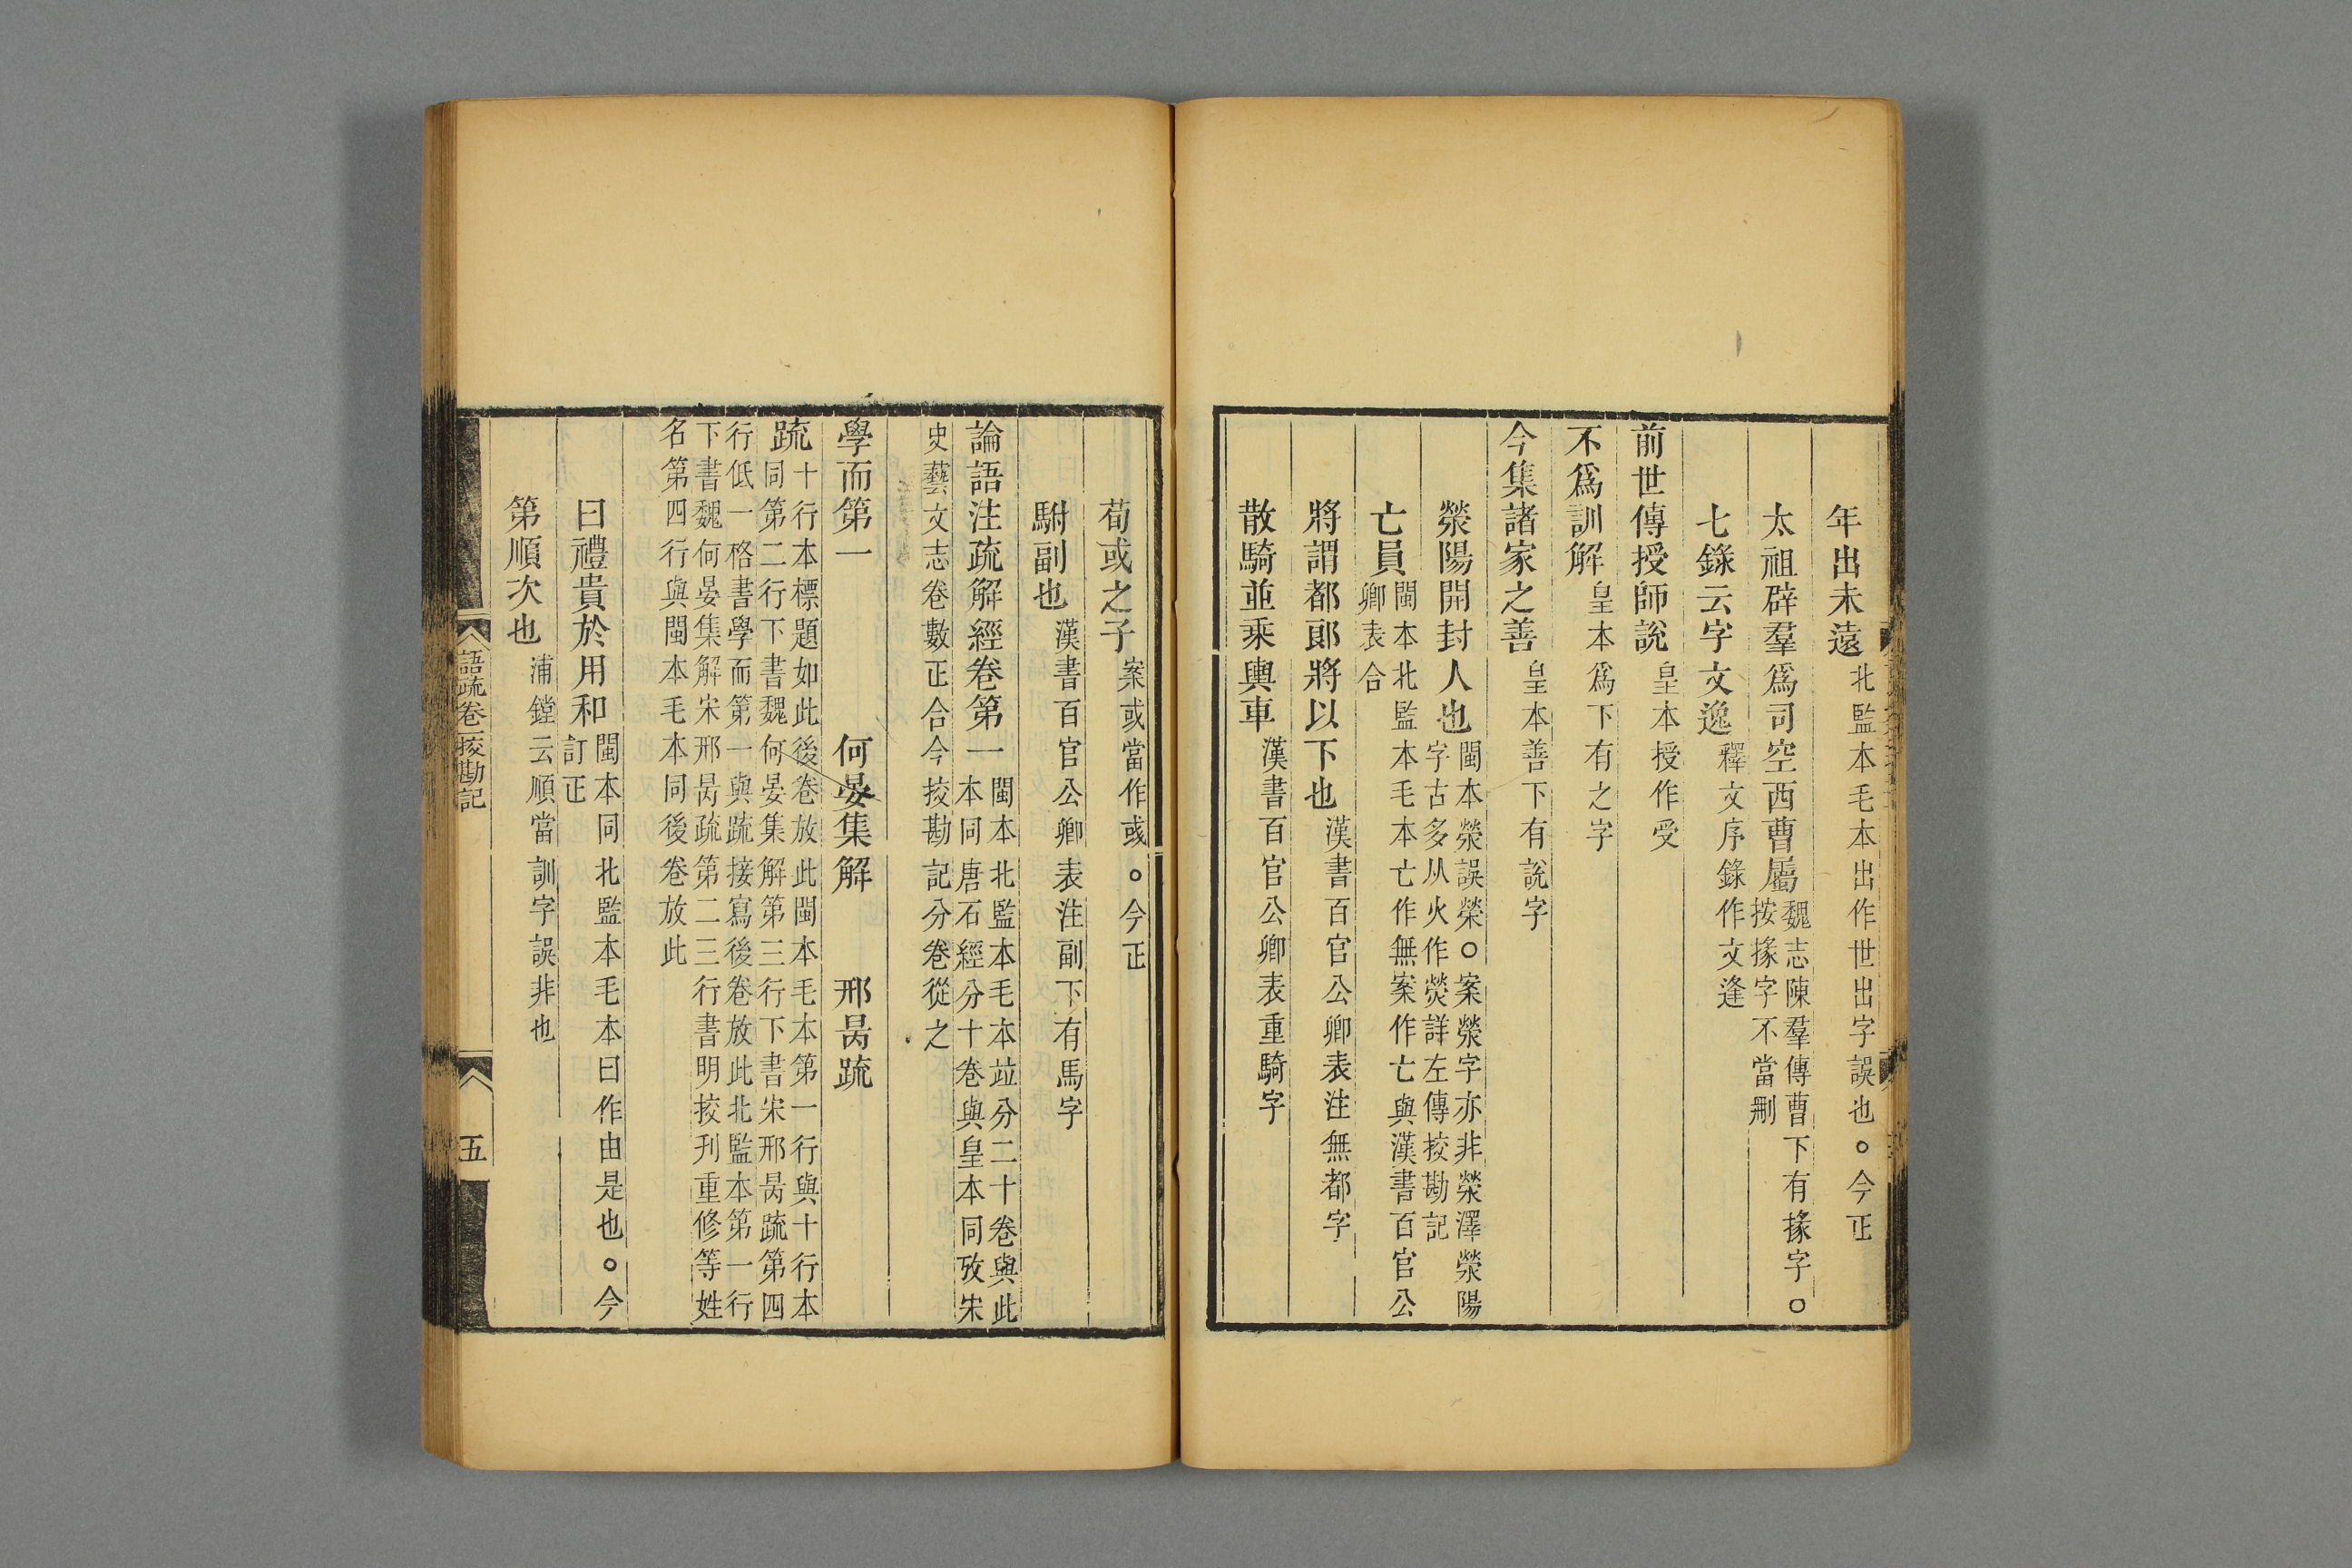 年出未遠北監本毛本出作世出字誤也○今正
太祖辟羣爲司空西曹屬魏志陳羣傳曹下有掾字○按掾字不當刪
七錄云字文逸釋文序錄作文逢
前世傳授師說皇本授作受
不爲訓解皇本爲下有之字
今集諸家之善皇本善下有說字
滎陽開封人也閩本滎誤榮○案滎字亦非滎澤滎陽字古多从火作熒詳左傳挍勘記
亡員閩本北監本毛本亡作無案作亡與漢書百官公卿表合
將謂都郎將以下也漢書百官公卿表注無都字
散騎並乘輿車漢書百官公卿表重騎字
荀或之子案或當作彧○今正
駙副也漢書百官公卿表注副下有馬字
論語注疏解經卷第一閩本北監本毛本竝分二十卷與此本同唐石經分十卷與皇本同攷宋
史藝文志卷數正合今挍勘記分卷從之
學而第一 何晏集解 邢昺疏
疏十行本標題如此後卷放此閩本毛本第一行與十行本同第二行下書魏何晏集解第三行下書宋邢昺疏第四
行低一格書學而第一與疏接寫後卷放此北監本第一行下書魏何晏集解宋邢昺疏第二三行書明挍刊重修等姓
名第四行與閩本毛本同後卷放此
曰禮貴於用和閩本同北監本毛本曰作由是也○今訂正
第順次也浦鏜云順當訓字誤非也
語疏卷一挍勘記
五